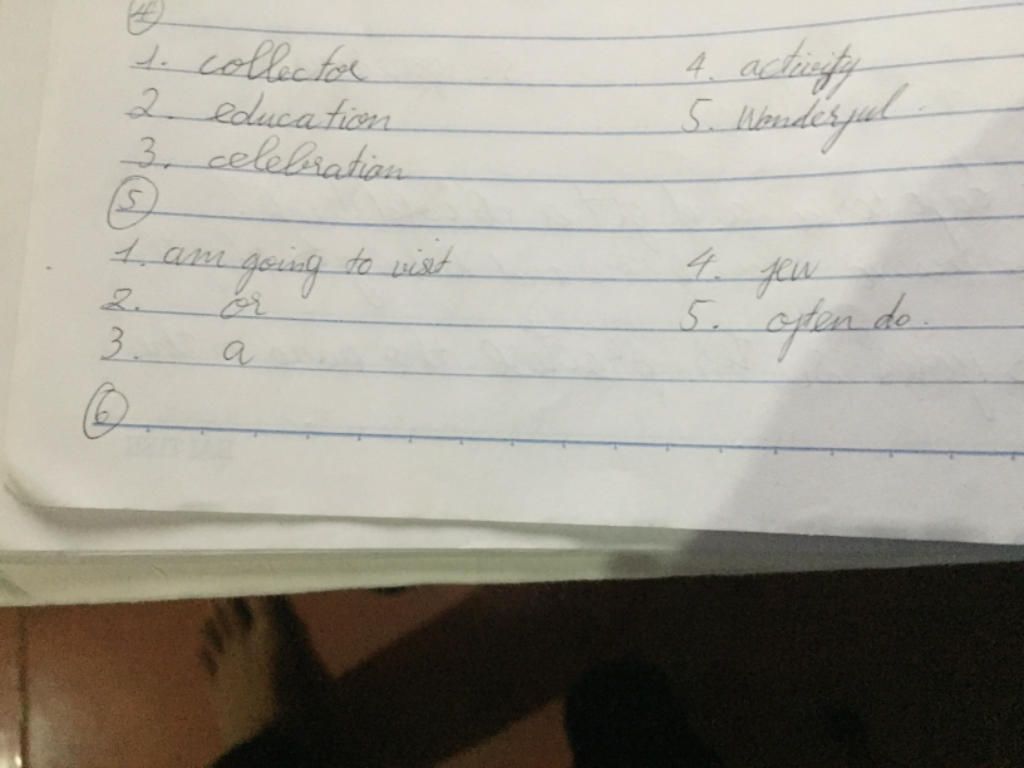 4
1. collector 4. activity
2. education 5. Wonderful.
3. celebration
5
1. am going to visit 4. few
2. or 5. often do.
3. a
6